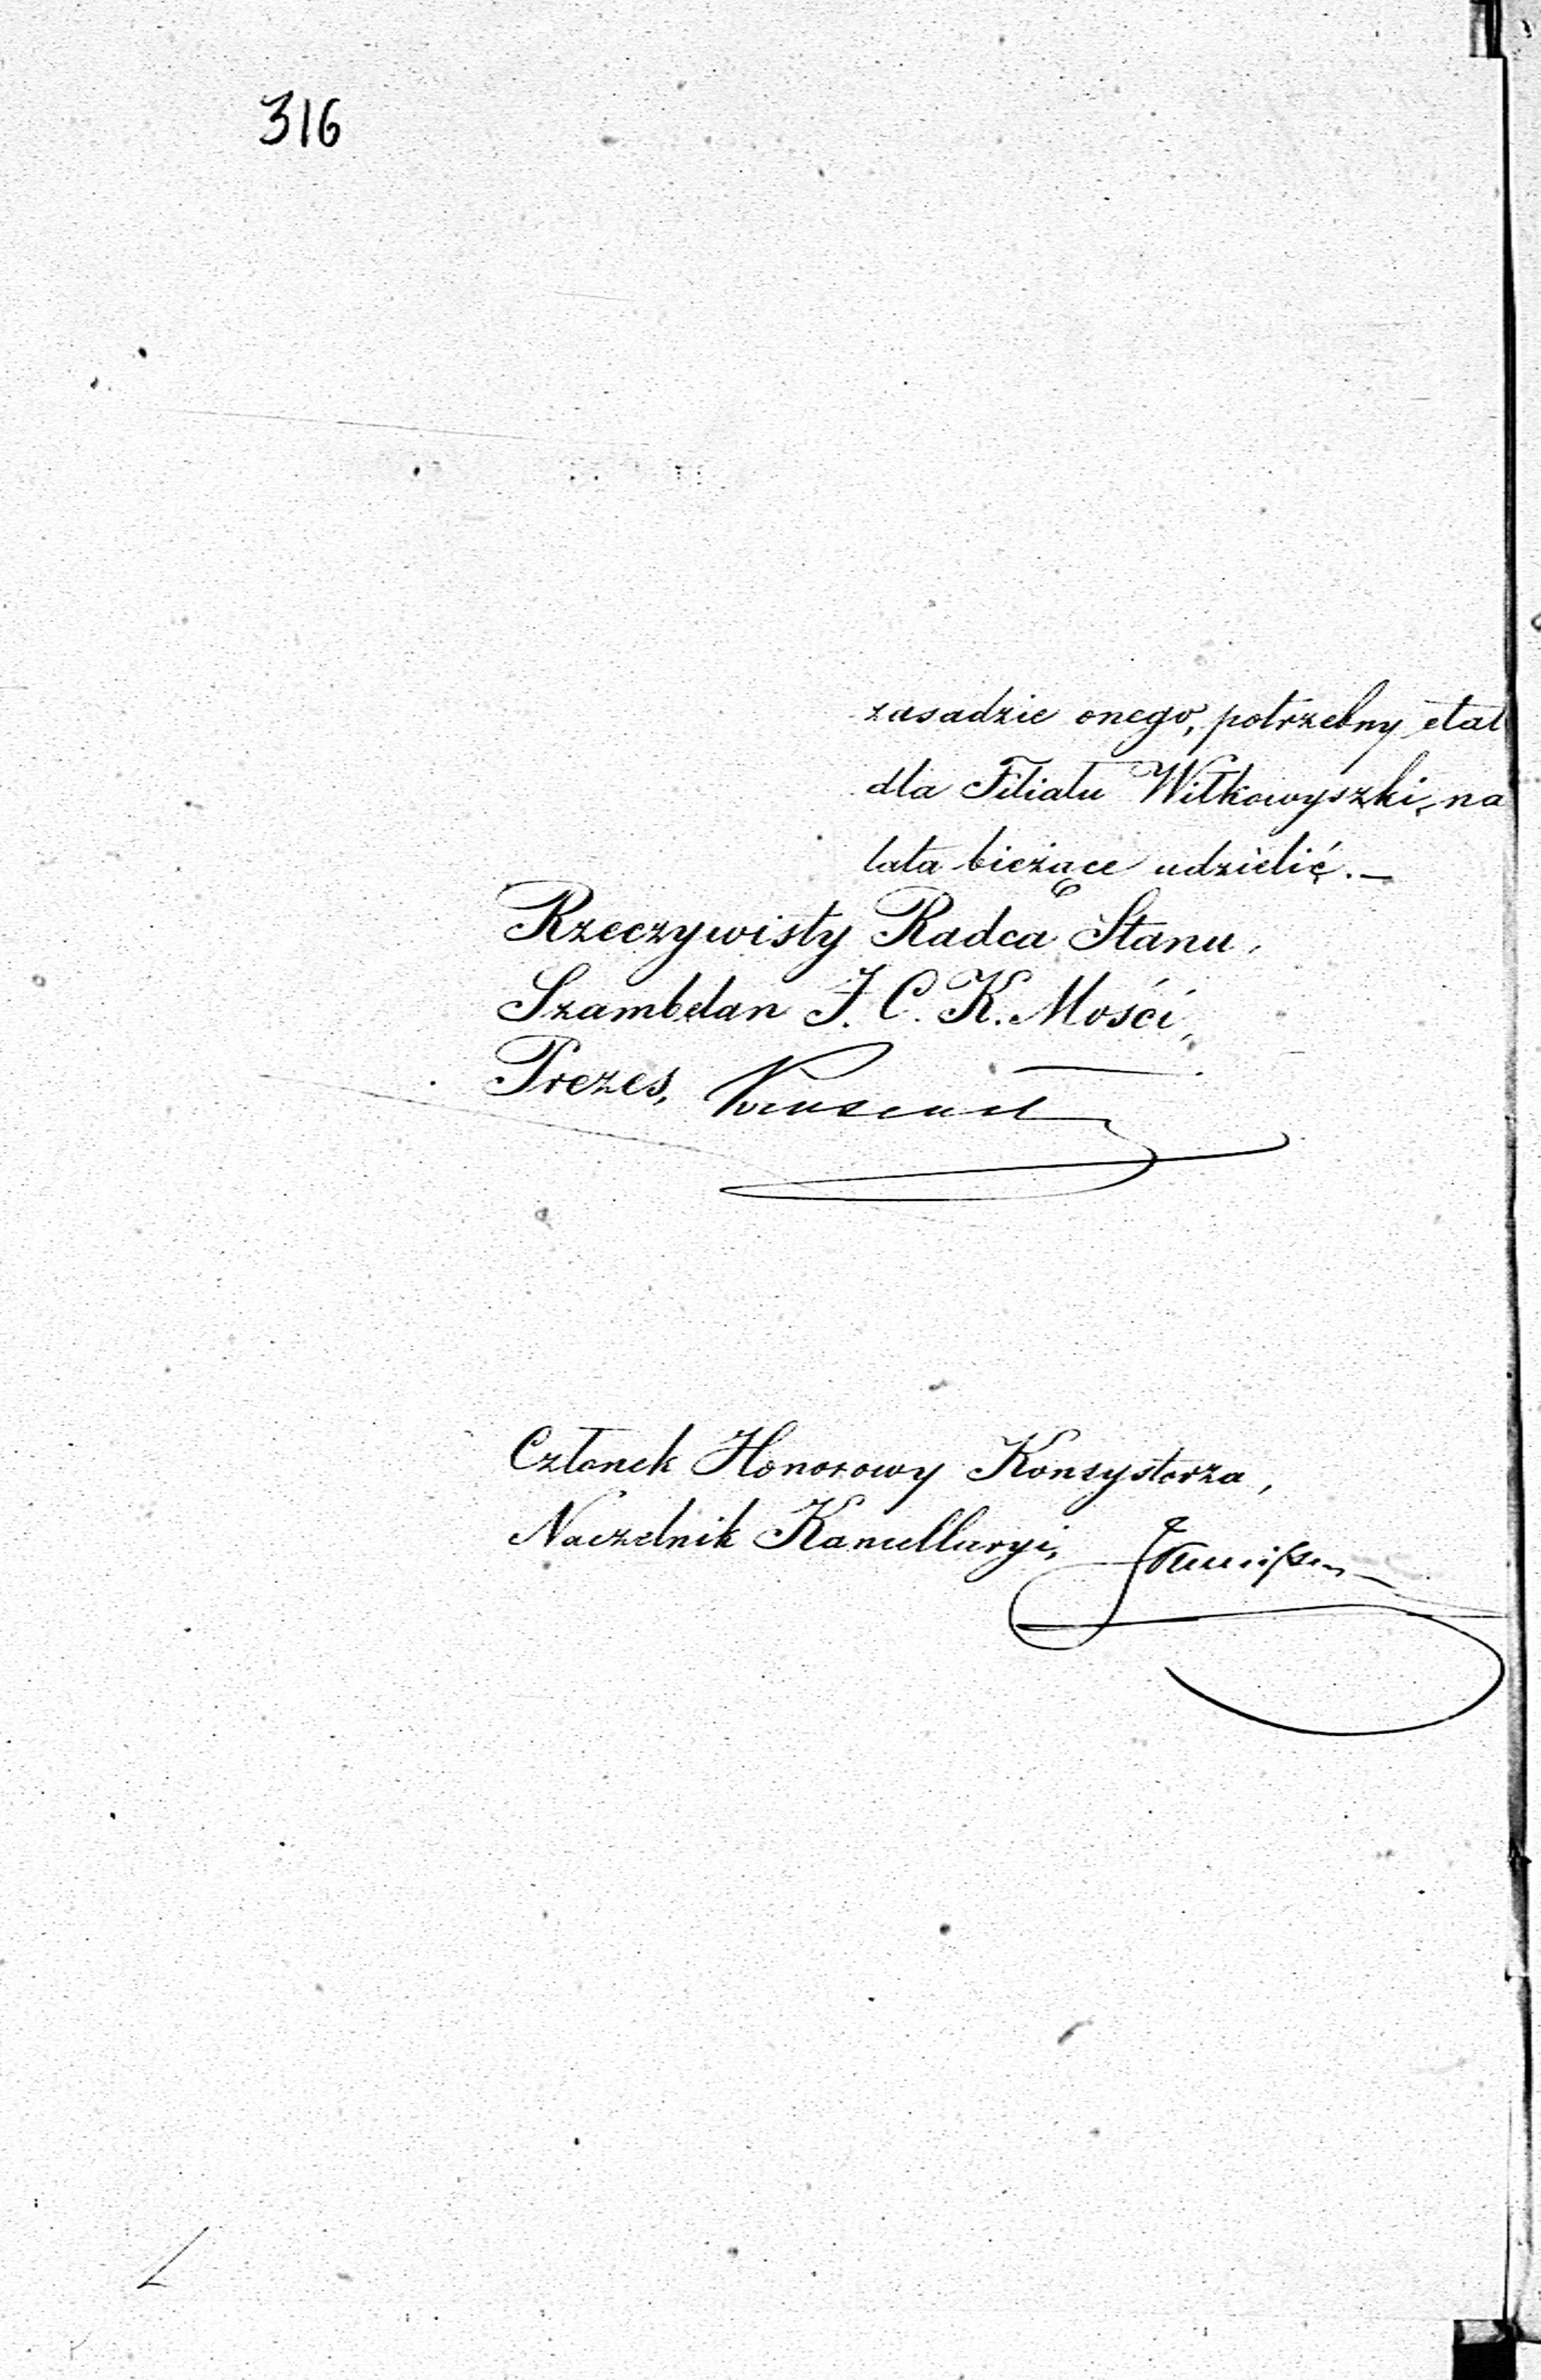 316
zasadzie onego, potrzebny etat
dla Filiału Wiłkowyszki, na
lata bieżące udzielić. —
Rzeczywisty Radca Stanu,
Szambelan J. C. K. Mości,
Prezes,
Członek Honorowy Konsystorza,
Naczelnik Kancellaryi,